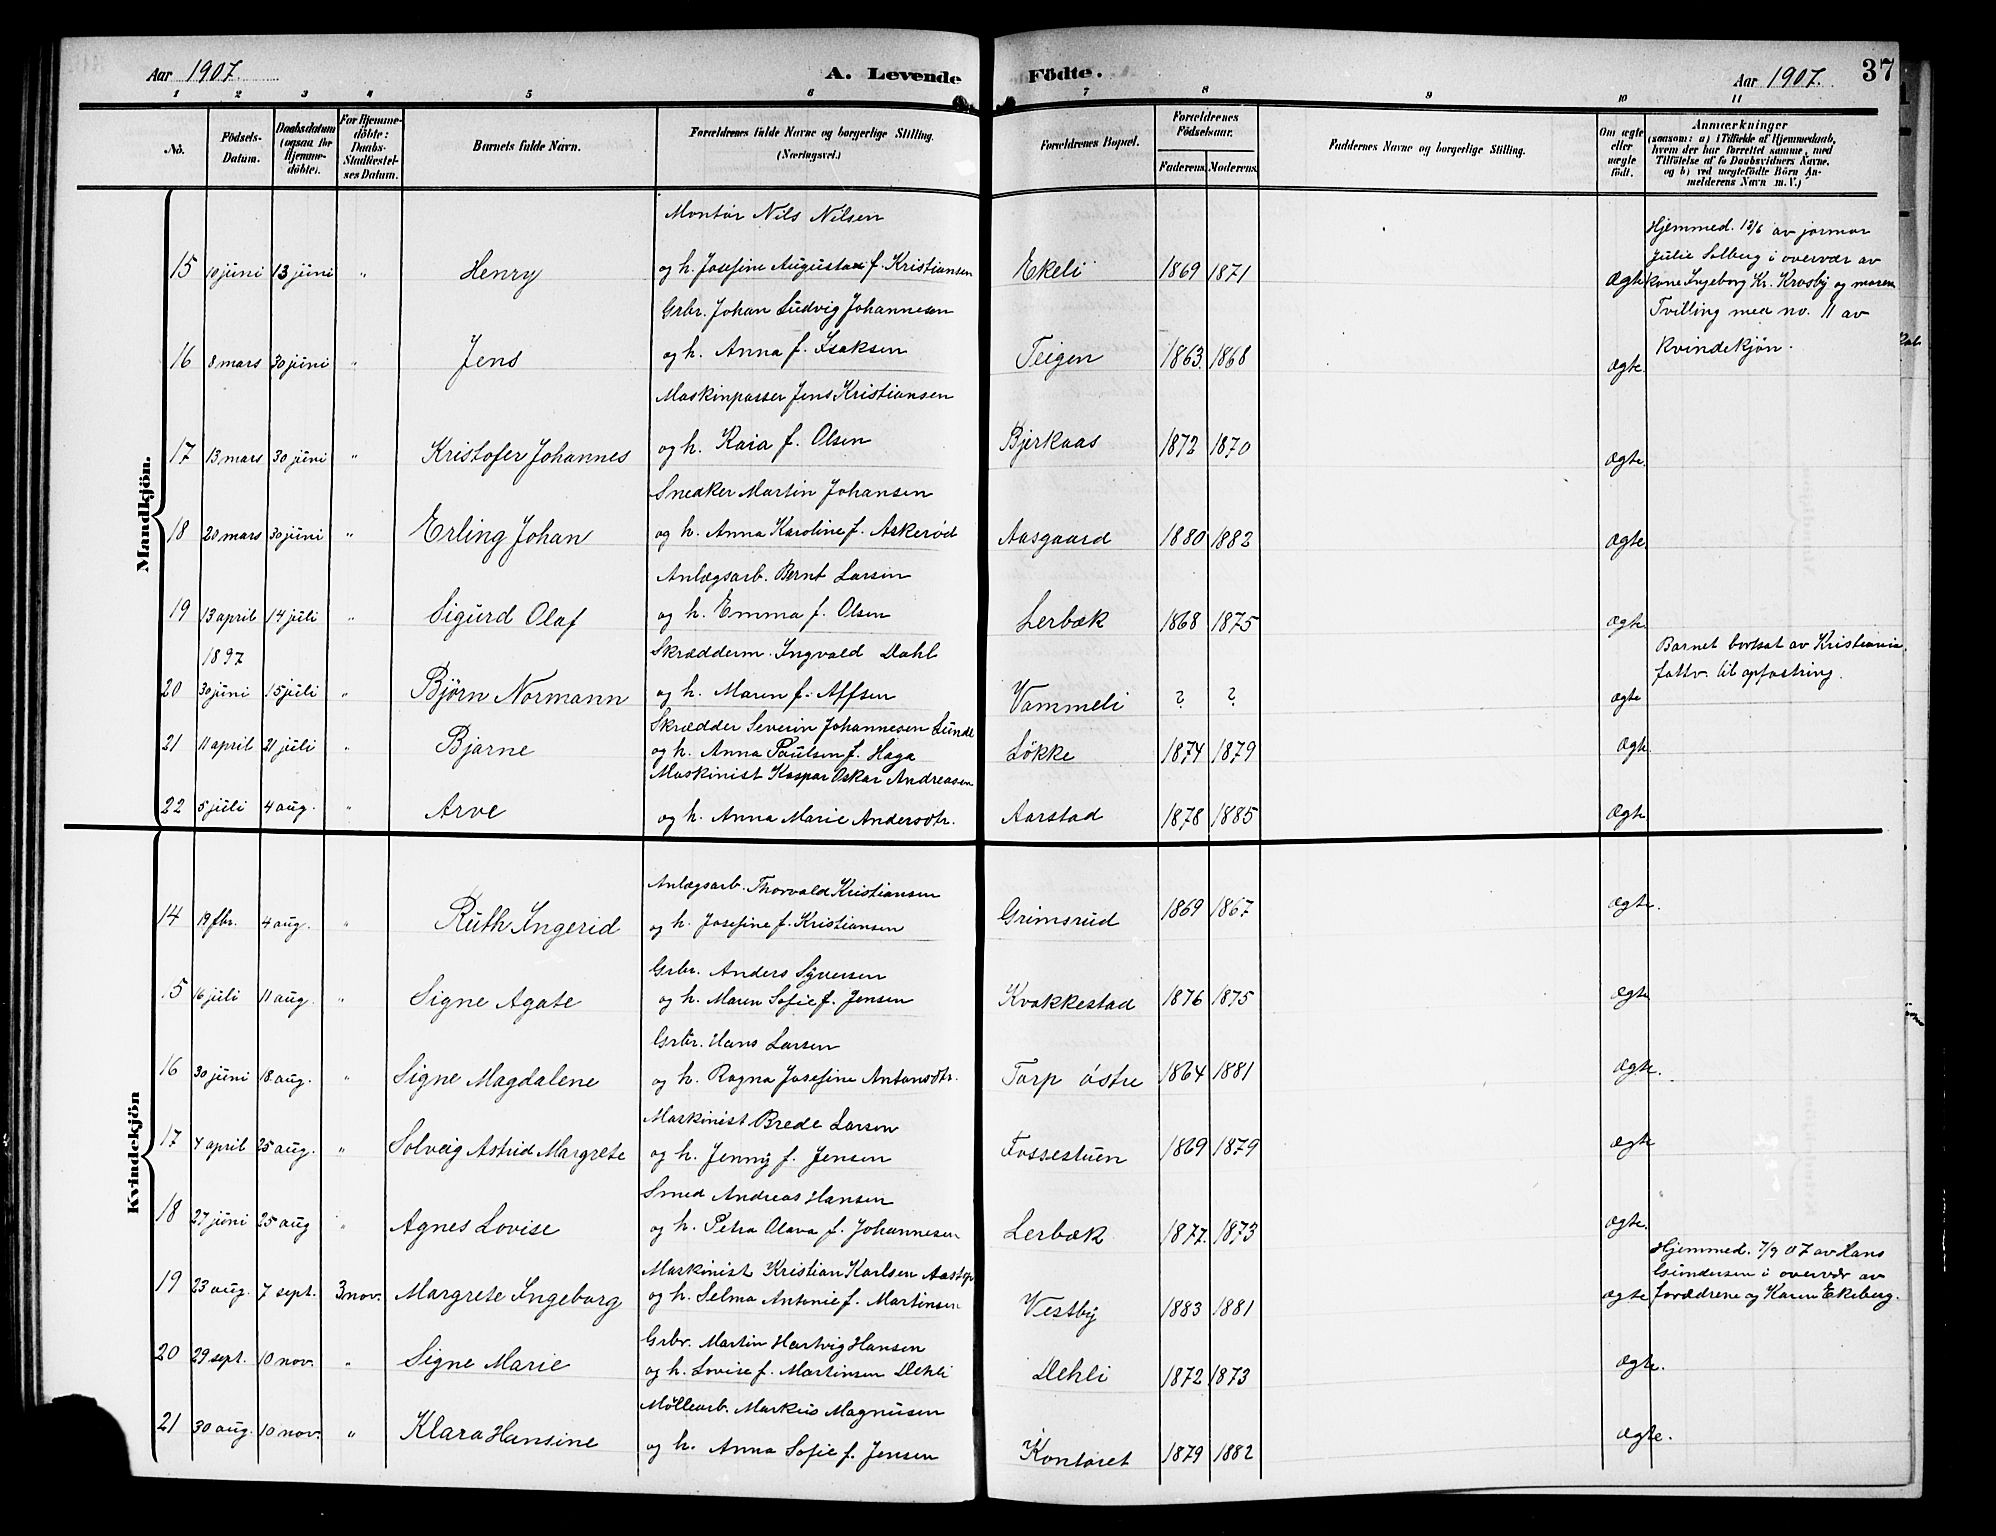 Aar 1907. A. Levende Födte. Aar 1907. 37
1 2 3 4 5 6 7 8 9 10 11
No. Födsels-Datum. Daabsdatum (ogsaa for Hjemme-döbte). For Hjemme-döbte: Daabs-Stadfæstel-ses Datum. Barnets fulde Navn. Forældrenes fulde Navne og borgerlige Stilling. (Næringsvei.) Forældrenes Bopæl. Forældrenes Födselsaar. Faderens. Moderens. Faddernes Navne og borgerlige Stilling. Om ægte eller uægte født. Anmærkninger (saasom: a) i Tilfælde af Hjemmedaab, hvem der har forrettet samme, med Tilföielse af to Daabsvidners Navne, og b) ved uægtefödte Börn An-melderens Navn m. V.)
Mandkjön.
Montør Nils Nilsen
15 10 juni 13 juni " Henry og h. Josefine Augusta f. Kristiansen Ekeli 1869 1871 Ægte
Hjemmed. 13/6 av jormor
Julie Solberg i overvær av
kone Ingeborg Kr. Krosby og moren
Grbr. Johan Ludvig Johannesen
16 8 mars 30 juni " Jens og h. Anna f. Isaksen Teigen 1863. 1868 Ægte.
Tvilling med no. 11 av
kvindekjön.
Maskinpasser Jens Kristiansen
17 13 mars 30 juni " Kristofer Johannes og h. Kaia f. Olsen Bjerkaas 1872 1870 Ægte.
Snedker Martin Johansen
18 20 mars 30 juni " Erling Johan og h. Anna Karoline f. Askerød Aasgaard 1880 1882 Ægte.
Anlægsarb. Bernt Larsen
19 13 april 14 juli " Sigurd Olaf og h. Emma f. Olsen Lerbæk 1868 1875 Ægte.
1897 Skrædderm. Ingvald Dahl
20 30 juni 15 juli " Björn Normann og h. Maren f. Affsen Vammeli ? ? Ægte
Barnet bortsat av Kristiania
fattv. til opfostring.
Skrædder Severin Johannesen Lunde
21 11 april 21 juli " Bjarne og h. Anna Paulsen f. Haga Løkke 1874 1879 Ægte
Maskinist Kaspar Oskar Andreasen
22 5 juli 4 aug. " Arve og h. Anna Marie Andersdtr. Aarstad 1878 1885 Ægte
Kvindekjön
Anlægsarb. Thorvald Kristiansen
14 19 fbr. 4 aug. " Ruth Ingerid og h. Josefine f. Kristiansen Grimsrud 1869 1867 Ægte.
Grbr. Anders Syversen
15 16 juli 11 aug. " Signe Agate og h. Maren Sofie f. Jensen Kvakkestad 1876 1875 Ægte
Grbr. Hans Larsen
16 30 juni 18 aug. " Signe Magdalene og h. Ragna Josefine Antonsdtr. Torp østre 1864 1881 Ægte.
Maskinist Brede Larsen
17 4 april 25 aug. " Solveig Astrid Margrete og h. Jenny f. Jensen Fossestuen 1869 1879 Ægte
Smed Andreas Hansen
18 27 juni 25 aug " Agnes Lovise og h. Petra Olava f. Johannesen Lerbæk 1877. 1873 Ægte.
Maskinist Kristian Karlsen
19 23 aug. 7 sept. 3 nov. Margrete Ingeborg og h. Selma Antonie f. Martinsen Vestby 1883 1881 Ægte
Hjemmed. 7/9 07 av Hans
Gundersen i overvær av
forældrene og Karen Ekeberg.
Grbr. Martin Hartvig Hansen
20 29 sept. 10 nov. " Signe Marie og h. Lovise f. Martinsen Dehli Dehli 1872 1873 Ægte.
Möllearb. Markus Magnusen
21 30 aug. 10 nov. " Klara Hansine og h. Anna Sofie f. Jensen Kontoret 1879 1882 Ægte.